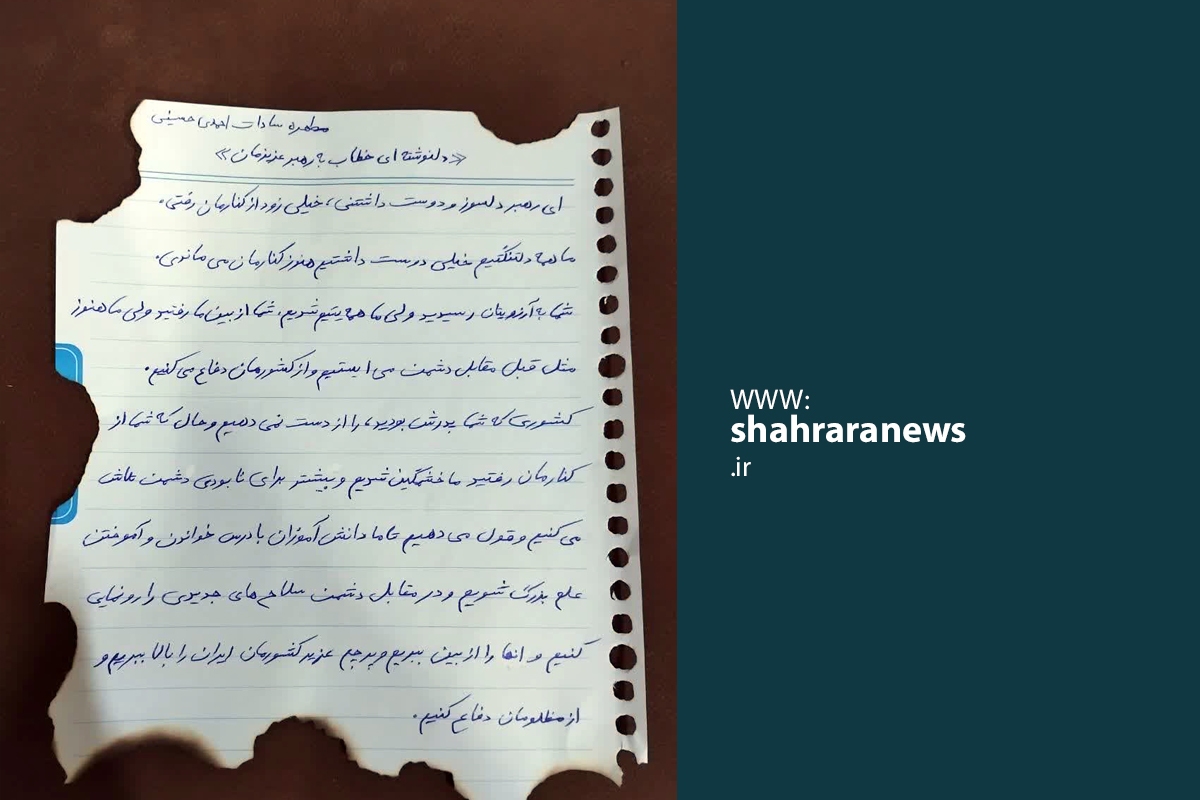 مطهره سادات احمدی حسینی
«دلنوشته ای خطاب به رهبر عزیزمان»
ای رهبر دلسوز و دوست داشتنی، خیلی زود از کنارمان رفتی.
ما همه دلتنگتیم خیلی دوست داشتیم هنوز کنارمان می ماندی.
شما به آرزویتان رسیدید ولی ما همه یتیم شدیم، شما از بین ما رفتید ولی ما هنوز
مثل قبل مقابل دشمن می ایستیم و از کشورمان دفاع می کنیم.
کشوری که شما پدرش بودید، را از دست نمی دهیم و حال که شما از
کنارمان رفتید ما خشمگین شدیم و بیشتر برای نابودی دشمن تلاش
می کنیم و قول می دهیم تا ما دانش آموزان با درس خواندن و آموختن
علم بزرگ شویم و در مقابل دشمن سلاح های جدیدی را رونمایی
کنیم و انها را از بین ببریم و پرچم عزیز کشورمان ایران را بالا ببریم و
از مظلومان دفاع کنیم.
WWW:
shahraranews
.ir